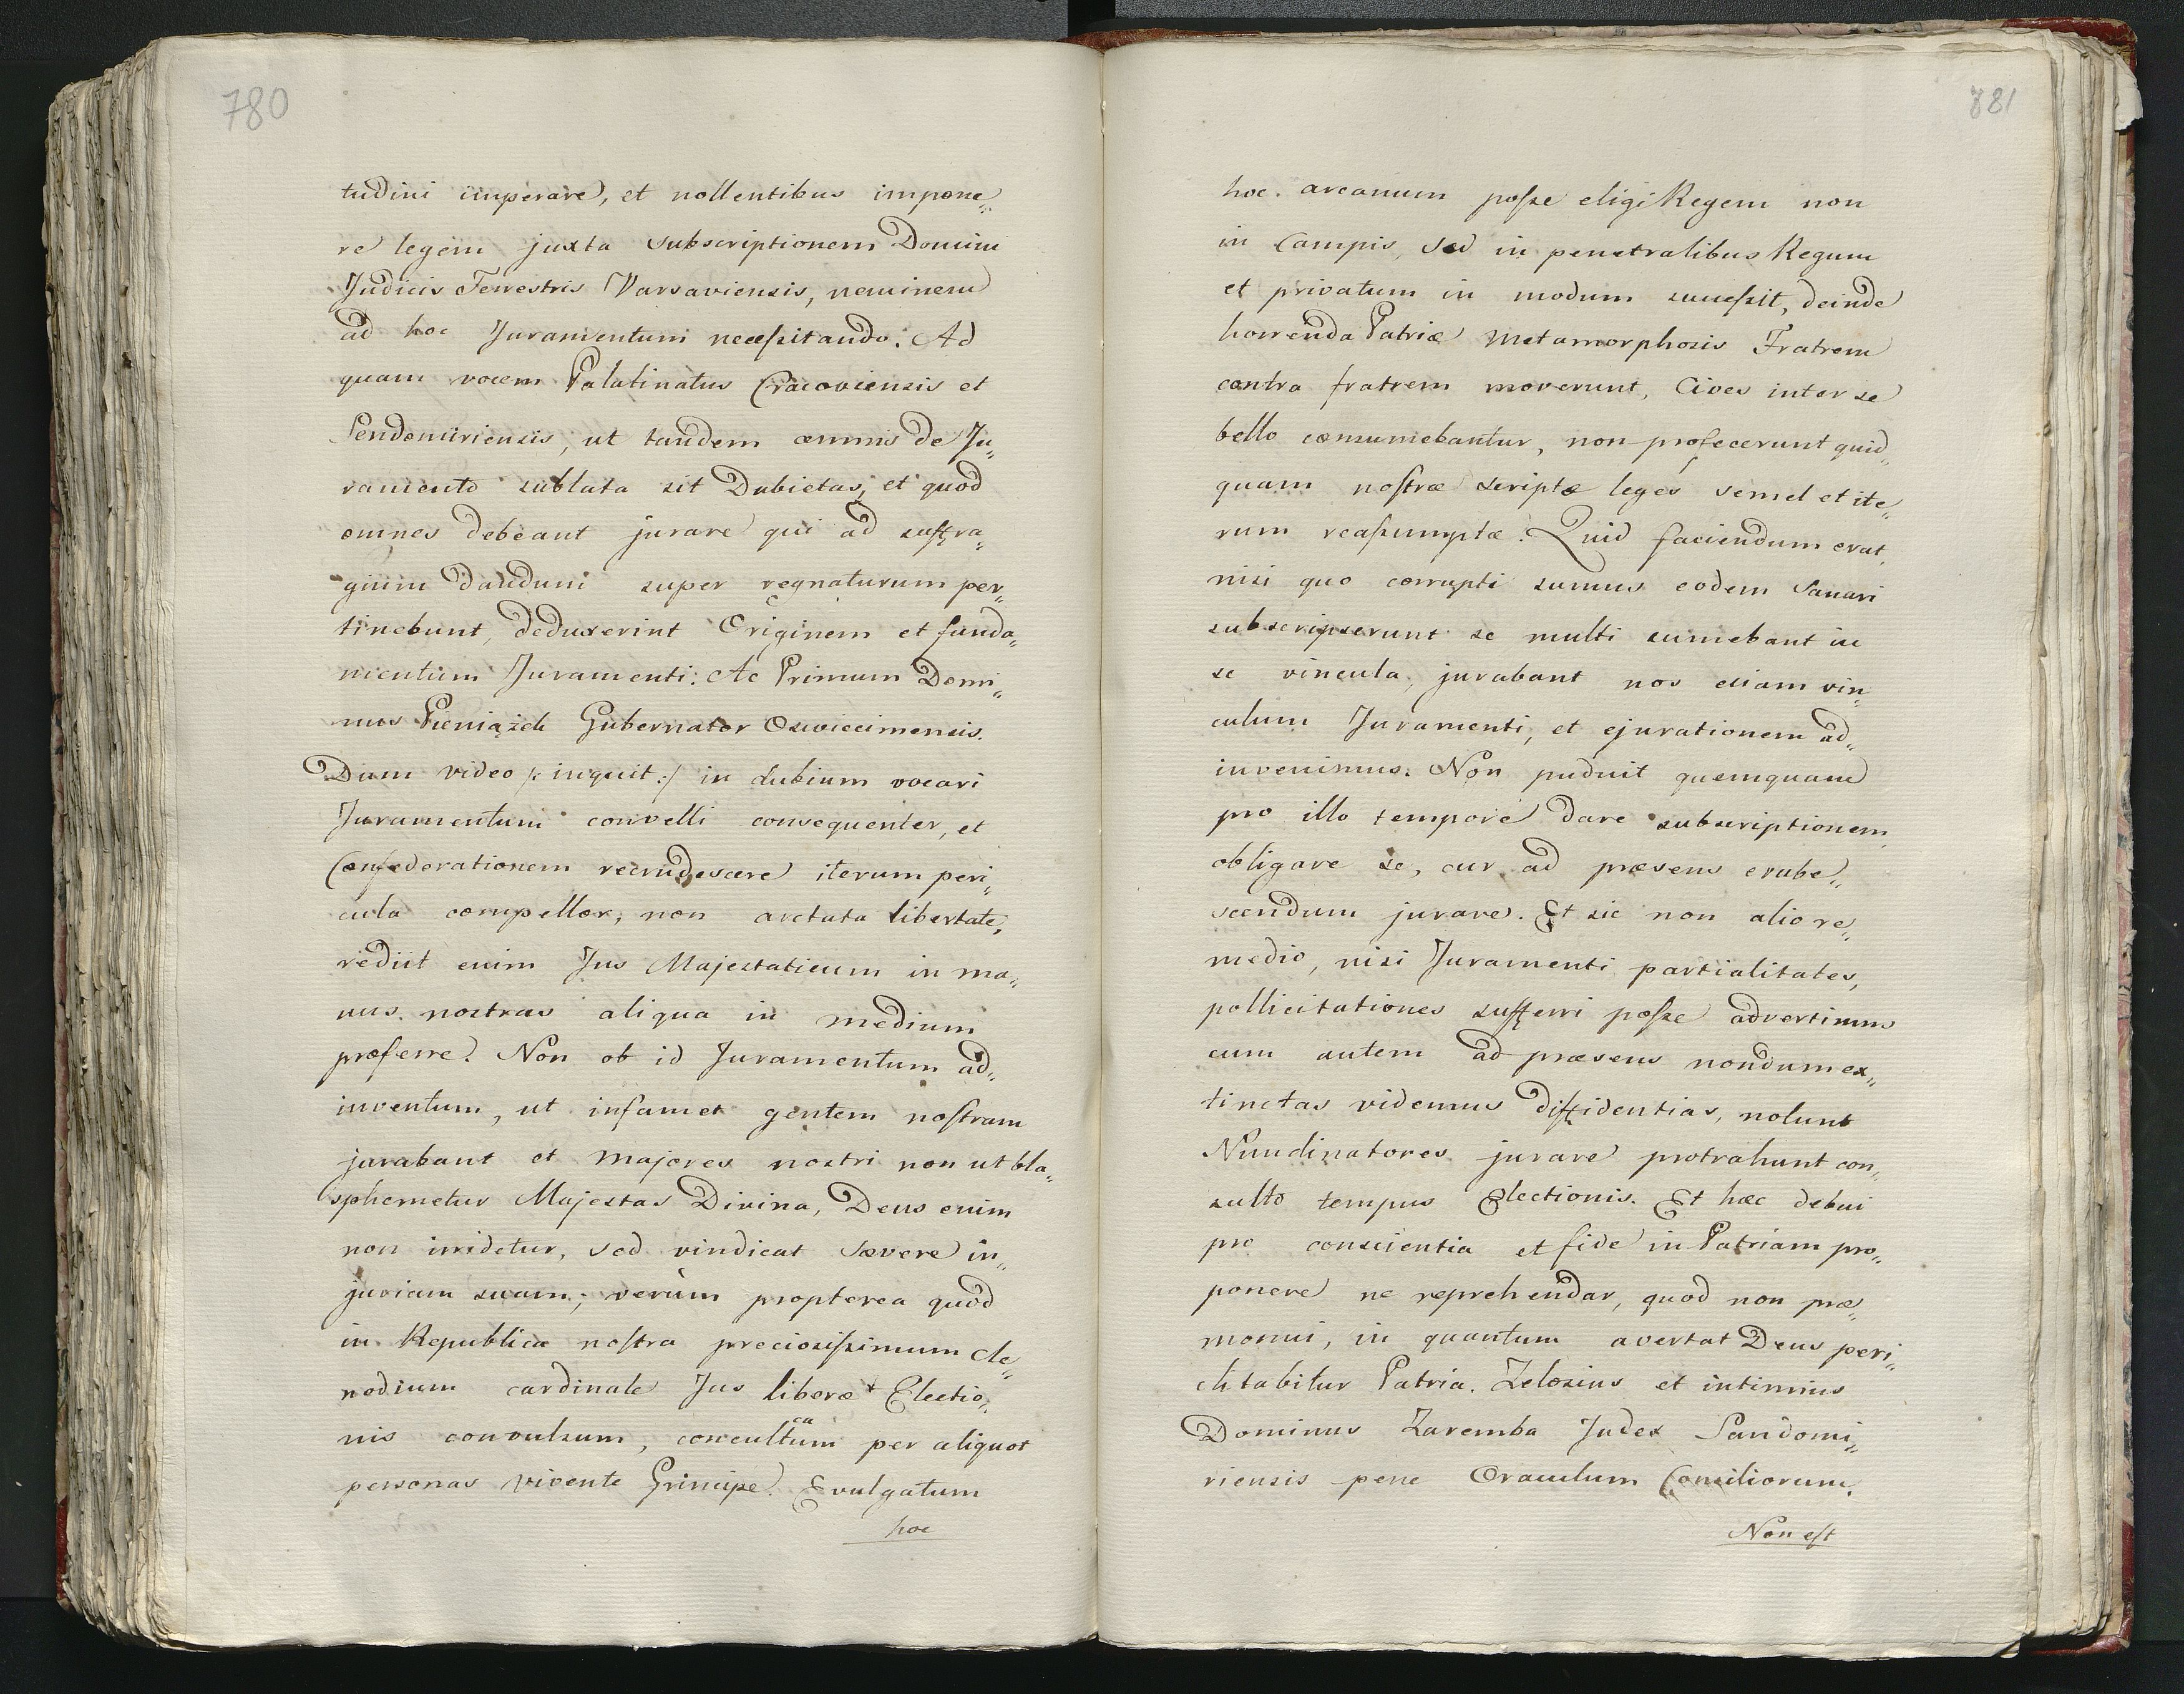 780
tudini imperare, et nollentibus impone„
re legem juxta subscriptionem Domini
Judicis Terrestris Varsaviensis, neminem
ad hoc Juramentum necessitando. Ad
quam vocem Palatinatus Cracoviensis et
Sendomiriensis, ut tandem omnis de Ju„
ramento sublata sit Dubietas, et quod
omnes debeant jurare qui ad suffra„
gium dandum super regnaturum per„
tinebunt, deduxerint Originem et funda„
mentum Juramenti: Ac Primum Domi„
nus Pieniążek Gubernator Oswiecimensis.
Dum video /: inquit :/ in dubium vocari
Juramentum convelli consequenter, et
Confederationem recrudescere iterum peri„
cula compellor, non arctata libertate,
rediit enim Jus Majestaticum in ma„
nus nostras aliqua in medium
proferre. Non ob id Juramentum ad„
inventum, ut infamet gentem nostram
jurabant et Majores nostri non ut bla„
sphemetur Majestas Divina, Deus enim
non irridetur, sed vindicat severe in„
juriam suam; verùm propterea quod
in Republica nostra preciosissimum cle„
nodium cardinale Jus liberæ Electio„
nis convulsum, concultum per aliquot
ca
personas vivente Principe. Evulgatum
hoc
781
hoc arcanum posse eligi Regem non
in Campis, sed in penetralibus Regum
et privatum in modum successit, deinde
horrenda Patriæ Metamorphosis Fratrem
contra fratrem moverunt, Cives inter se
bello consumebantur, non profecerunt quid„
quam nostræ scriptæ leges semel et ite„
rum reassumptæ. Quid faciendum erat,
nisi quo corrupti sumus eodem Sanari
subscripserunt se multi sumebant in
se vincula, jurabant nos etiam vin„
culum Juramenti, et ejurationem ad„
invenimus. Non puduit quemquam
pro illo tempore dare subscriptionem,
obligare se, cur ad præsens erube„
scendum jurare. Et sic non alio re„
medio, nisi Juramenti partialitates,
pollicitationes sufferri posse advertimus
cum autem ad præsens nondum ex„
tinctas videmus diffidentias, nolunt
Nundinatores jurare protrahunt con„
sulto tempus Electionis. Et hæc debui
pro conscientia et fide in Patriam pro„
ponere ne reprehendar, quod non præ„
monui, in quantum avertat Deus peri„
clitabitur Patria. Zelosius et intimius
Dominus Zaremba Judex Sandomi„
riensis pene Oraculum Consiliorum.
Non est